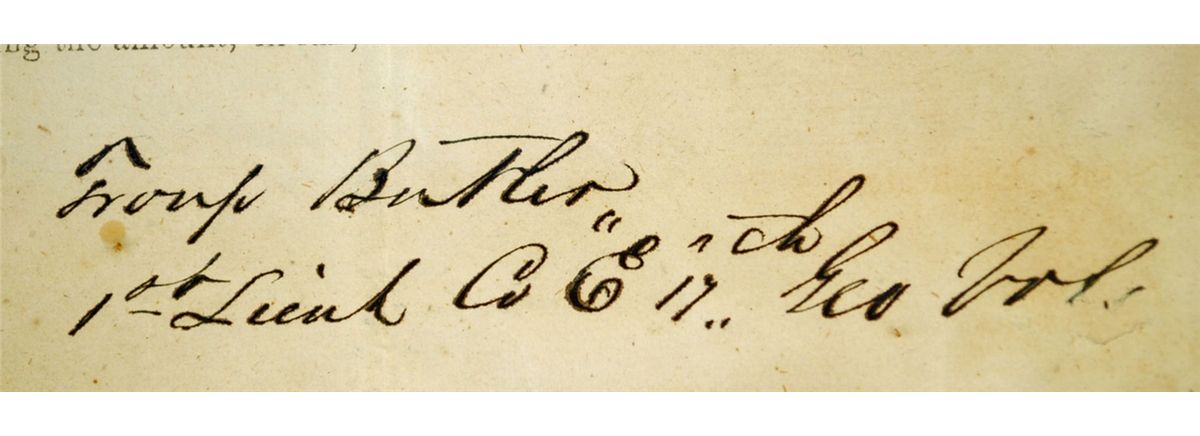 ing the amount,
Troup Butler
1st Lieut Co "E" 17th Geo Vol.